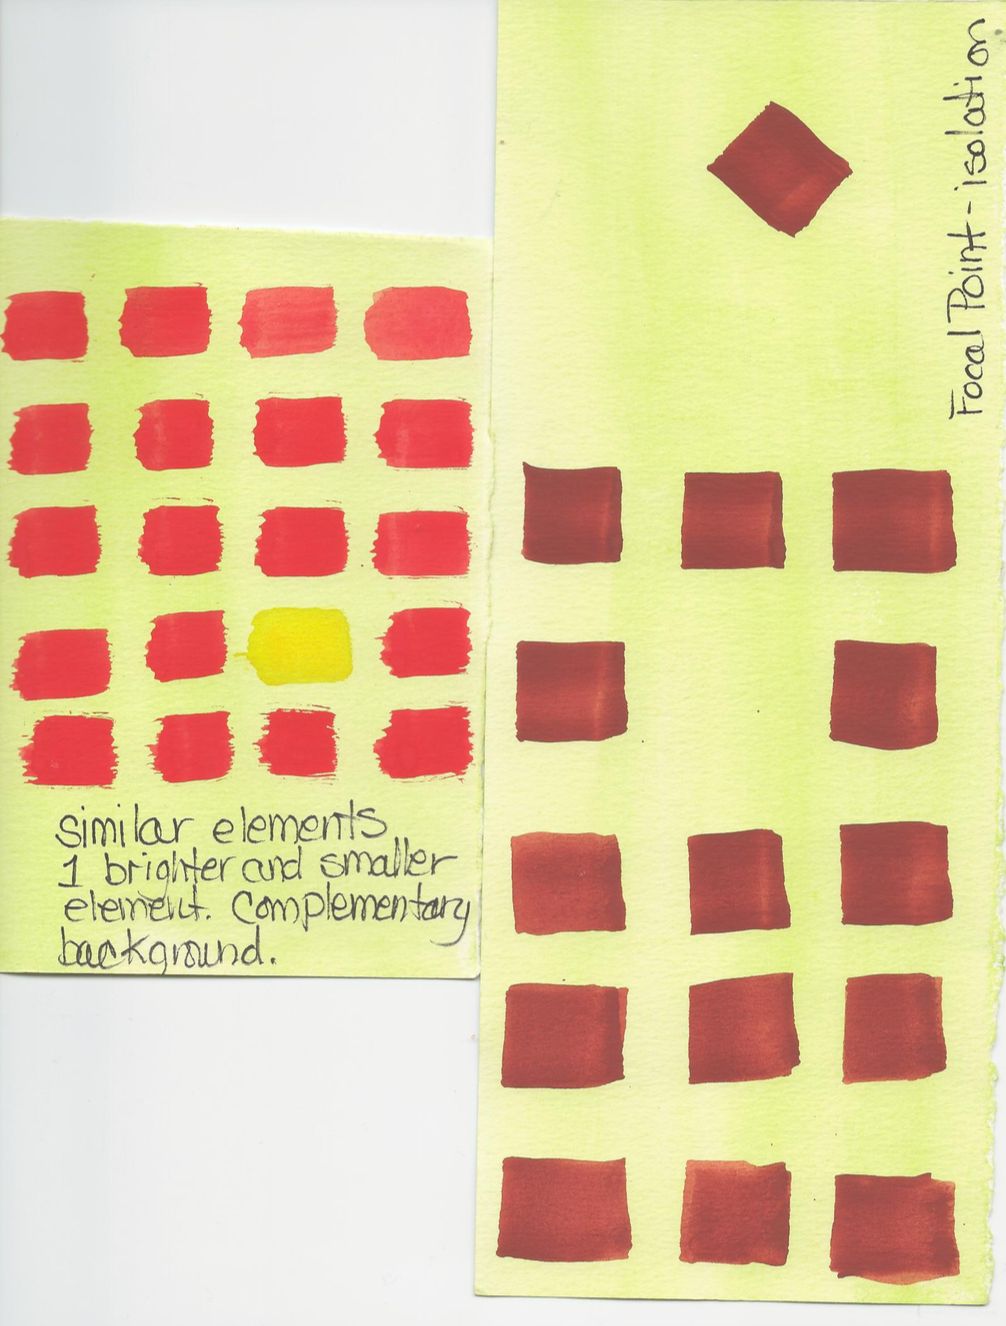 similar elements
1 brighter and smaller
element. Complementary
background.
Focal Point - isolation